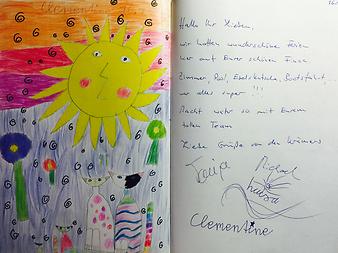 Clementine
Hallo Ihr Lieben,
wir hatten wunderschöne Ferien
hier auf Eurer schönen
Zimmer, Pool, Eselskutsche, Bootsfahrt,
war alles super !!!
Macht weiter so mit Eurem
tollen Team
Liebe Grüße von den
Tanja Michael
Clementine